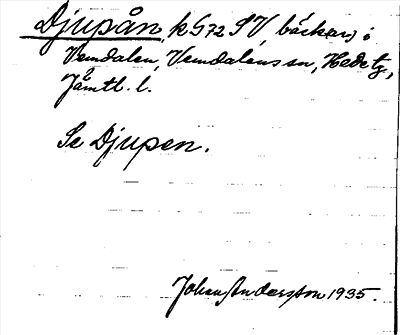 Djupån, k G 72 SV bäckar, i
Vemdalen, Vemdalens sn, Hede tg,
Jämtl. l.
Se Djupen.
Johan Andersson 1935.